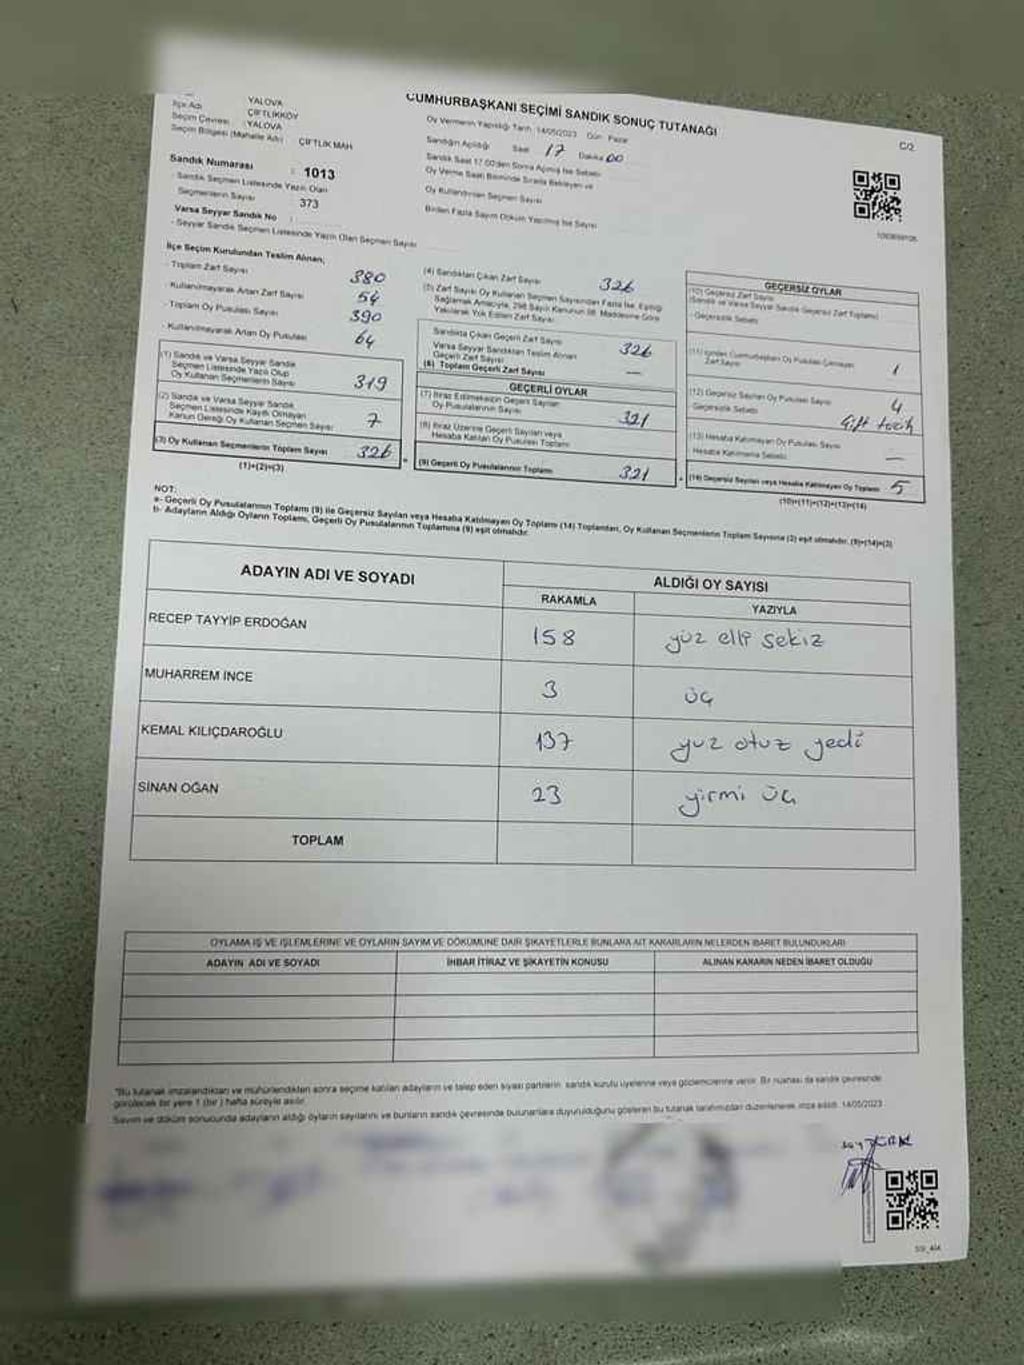 CUMHURBAŞKANI SEÇİMİ SANDIK SONUÇ TUTANAĞI
C/2
YALOVA
İlçe Adı ÇİFTLİKKÖY
Seçim Çevresi : YALOVA
Seçim Bölgesi (Mahalle Adı) ÇİFTLİK MAH
Sandık Numarası : 1013
- Sandık Seçmen Listesinde Yazılı Olan
Seçmenlerin Sayısı 373
Varsa Seyyar Sandık No :
- Seyyar Sandık Seçmen Listesinde Yazılı Olan Seçmen Sayısı
Oy Vermenin Yapıldığı Tarih 14/05/2023 Gün Pazar
Sandığın Açıldığı Saat 17 Dakika 00
Sandık Saat 17.00'den Sonra Açılmış İse Sebebi
Oy Verme Saati Bitiminde Sırada Bekleyen ve
Oy Kullandırılan Seçmen Sayısı
Birden Fazla Sayım Döküm Yapılmış İse Sayısı
İlçe Seçim Kurulundan Teslim Alınan;
- Toplam Zarf Sayısı 380
- Kullanılmayarak Artan Zarf Sayısı 54
- Toplam Oy Pusulası Sayısı 390
- Kullanılmayarak Artan Oy Pusulası 64
(1) Sandık ve Varsa Seyyar Sandık
Seçmen Listesinde Yazılı Olup
Oy Kullanan Seçmenlerin Sayısı 319
(2) Sandık ve Varsa Seyyar Sandık
Seçmen Listesinde Kayıtlı Olmayan
Kanun Gereği Oy Kullanan Seçmen Sayısı 7
(3) Oy Kullanan Seçmenlerin Toplam Sayısı 326
(1)+(2)=(3)
(4) Sandıktan Çıkan Zarf Sayısı 326
(5) Zarf Sayısı Oy Kullanan Seçmen Sayısından Fazla İse, Eşitliği
Sağlamak Amacıyla, 298 Sayılı Kanunun 98. Maddesine Göre
Yakılarak Yok Edilen Zarf Sayısı
Sandıkta Çıkan Geçerli Zarf Sayısı 326
Varsa Seyyar Sandıktan Teslim Alınan
Geçerli Zarf Sayısı —
(6) Toplam Geçerli Zarf Sayısı
GEÇERLİ OYLAR
(7) İtiraz Edilmeksizin Geçerli Sayılan
Oy Pusulalarının Sayısı 321
(8) İtiraz Üzerine Geçerli Sayılan veya
Hesaba Katılan Oy Pusulası Toplamı
(9) Geçerli Oy Pusulalarının Toplamı 321
GEÇERSİZ OYLAR
(10) Geçersiz Zarf Sayısı
(Sandık ve Varsa Seyyar Sandık Geçersiz Zarf Toplamı)
- Geçersizlik Sebebi
(11) İçinden Cumhurbaşkanı Oy Pusulası Çıkmayan
Zarf Sayısı 1
(12) Geçersiz Sayılan Oy Pusulası Sayısı 4
- Geçersizlik Sebebi Çift tercih
(13) Hesaba Katılmayan Oy Pusulası Sayısı
Hesaba Katılmama Sebebi —
(14) Geçersiz Sayılan veya Hesaba Katılmayan Oy Toplamı 5
(10)+(11)+(12)+(13)=(14)
NOT:
a- Geçerli Oy Pusulalarının Toplamı (9) ile Geçersiz Sayılan veya Hesaba Katılmayan Oy Toplamı (14) Toplamları, Oy Kullanan Seçmenlerin Toplam Sayısına (3) eşit olmalıdır. (9)+(14)=(3)
b- Adayların Aldığı Oyların Toplamı, Geçerli Oy Pusulalarının Toplamına (9) eşit olmalıdır.
ADAYIN ADI VE SOYADI
ALDIĞI OY SAYISI
RAKAMLA YAZIYLA
RECEP TAYYİP ERDOĞAN 158 yüz elli sekiz
MUHARREM İNCE 3 üç
KEMAL KILIÇDAROĞLU 137 yüz otuz yedi
SİNAN OĞAN 23 yirmi üç
TOPLAM
OYLAMA İŞ VE İŞLEMLERİNE VE OYLARIN SAYIM VE DÖKÜMÜNE DAİR ŞİKAYETLERLE BUNLARA AİT KARARLARIN NELERDEN İBARET BULUNDUKLARI
ADAYIN ADI VE SOYADI İHBAR İTİRAZ VE ŞİKAYETİN KONUSU ALINAN KARARIN NEDEN İBARET OLDUĞU
"Bu tutanak imzalandıktan ve mühürlendikten sonra seçime katılan adayların ve talep eden siyasi partilerin sandık kurulu üyelerine veya gözlemcilerine verilir. Bir nüshası da sandık çevresinde
görülecek bir yere 1 (bir) hafta süreyle asılır.
Sayım ve döküm sonucunda adayların aldığı oyların sayılarını ve bunların sandık çevresinde bulunanlara duyurulduğunu gösteren bu tutanak tarafımızdan düzenlenerek imza edildi. 14/05/2023